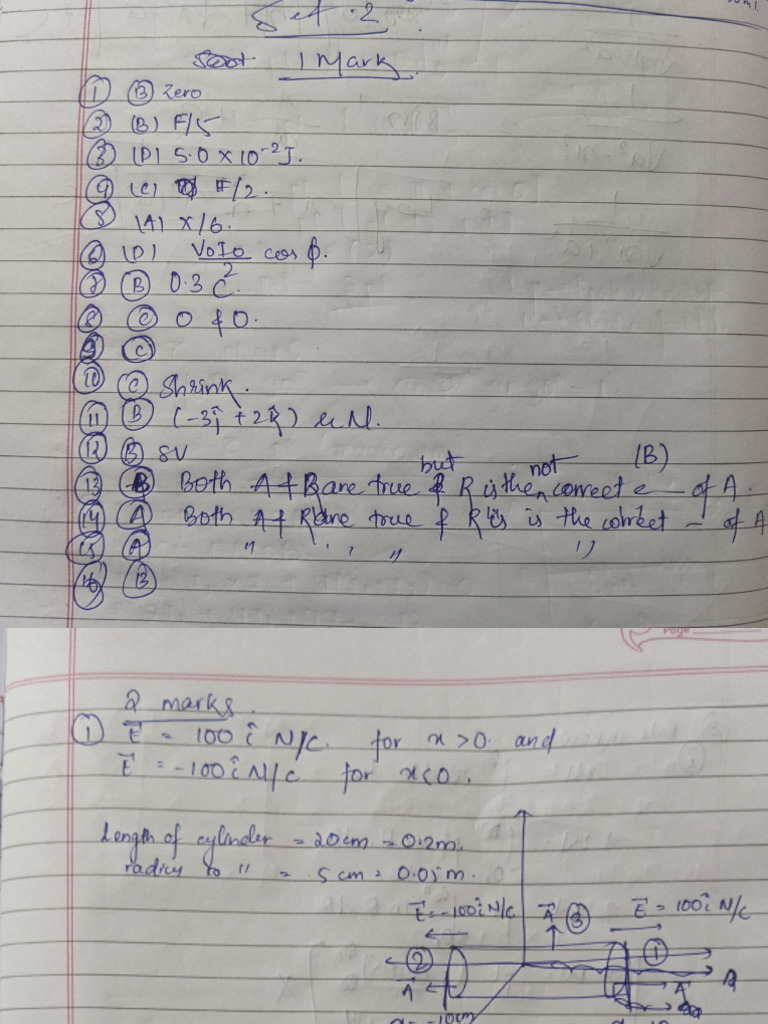 Set.2
1 Mark
① Ⓑ Zero
② (B) F/5
③ (D) 5.0 × 10⁻² J.
④ (C) F/2.
⑤ (A) X/6.
⑥ (D) V₀I₀ cos φ.
⑦ Ⓑ 0.3 C²
⑧ Ⓒ 0 & 0.
⑨ Ⓒ
⑩ Ⓒ Shrink.
⑪ Ⓑ (-3î + 2k̂) uN.
⑫ Ⓑ 8V
but not (B)
⑬ Ⓑ Both A & R are true R is the correct e — of A.
⑭ Ⓐ Both A & R are true & R is is the correct – of A
⑮ Ⓐ " " " "
⑯ Ⓑ
Page
2 marks.
① E⃗ = 100 î N/C. for x >0. and
E⃗ = -100 î N/C for x<0.
Length of cylinder = 20 cm = 0.2m.
radius to " = 5 cm = 0.05 m.
E⃗ = -100 î N/C A⃗ ③ E⃗ = 100 î N/C
② ①
A⃗ A⃗
x = -10cm